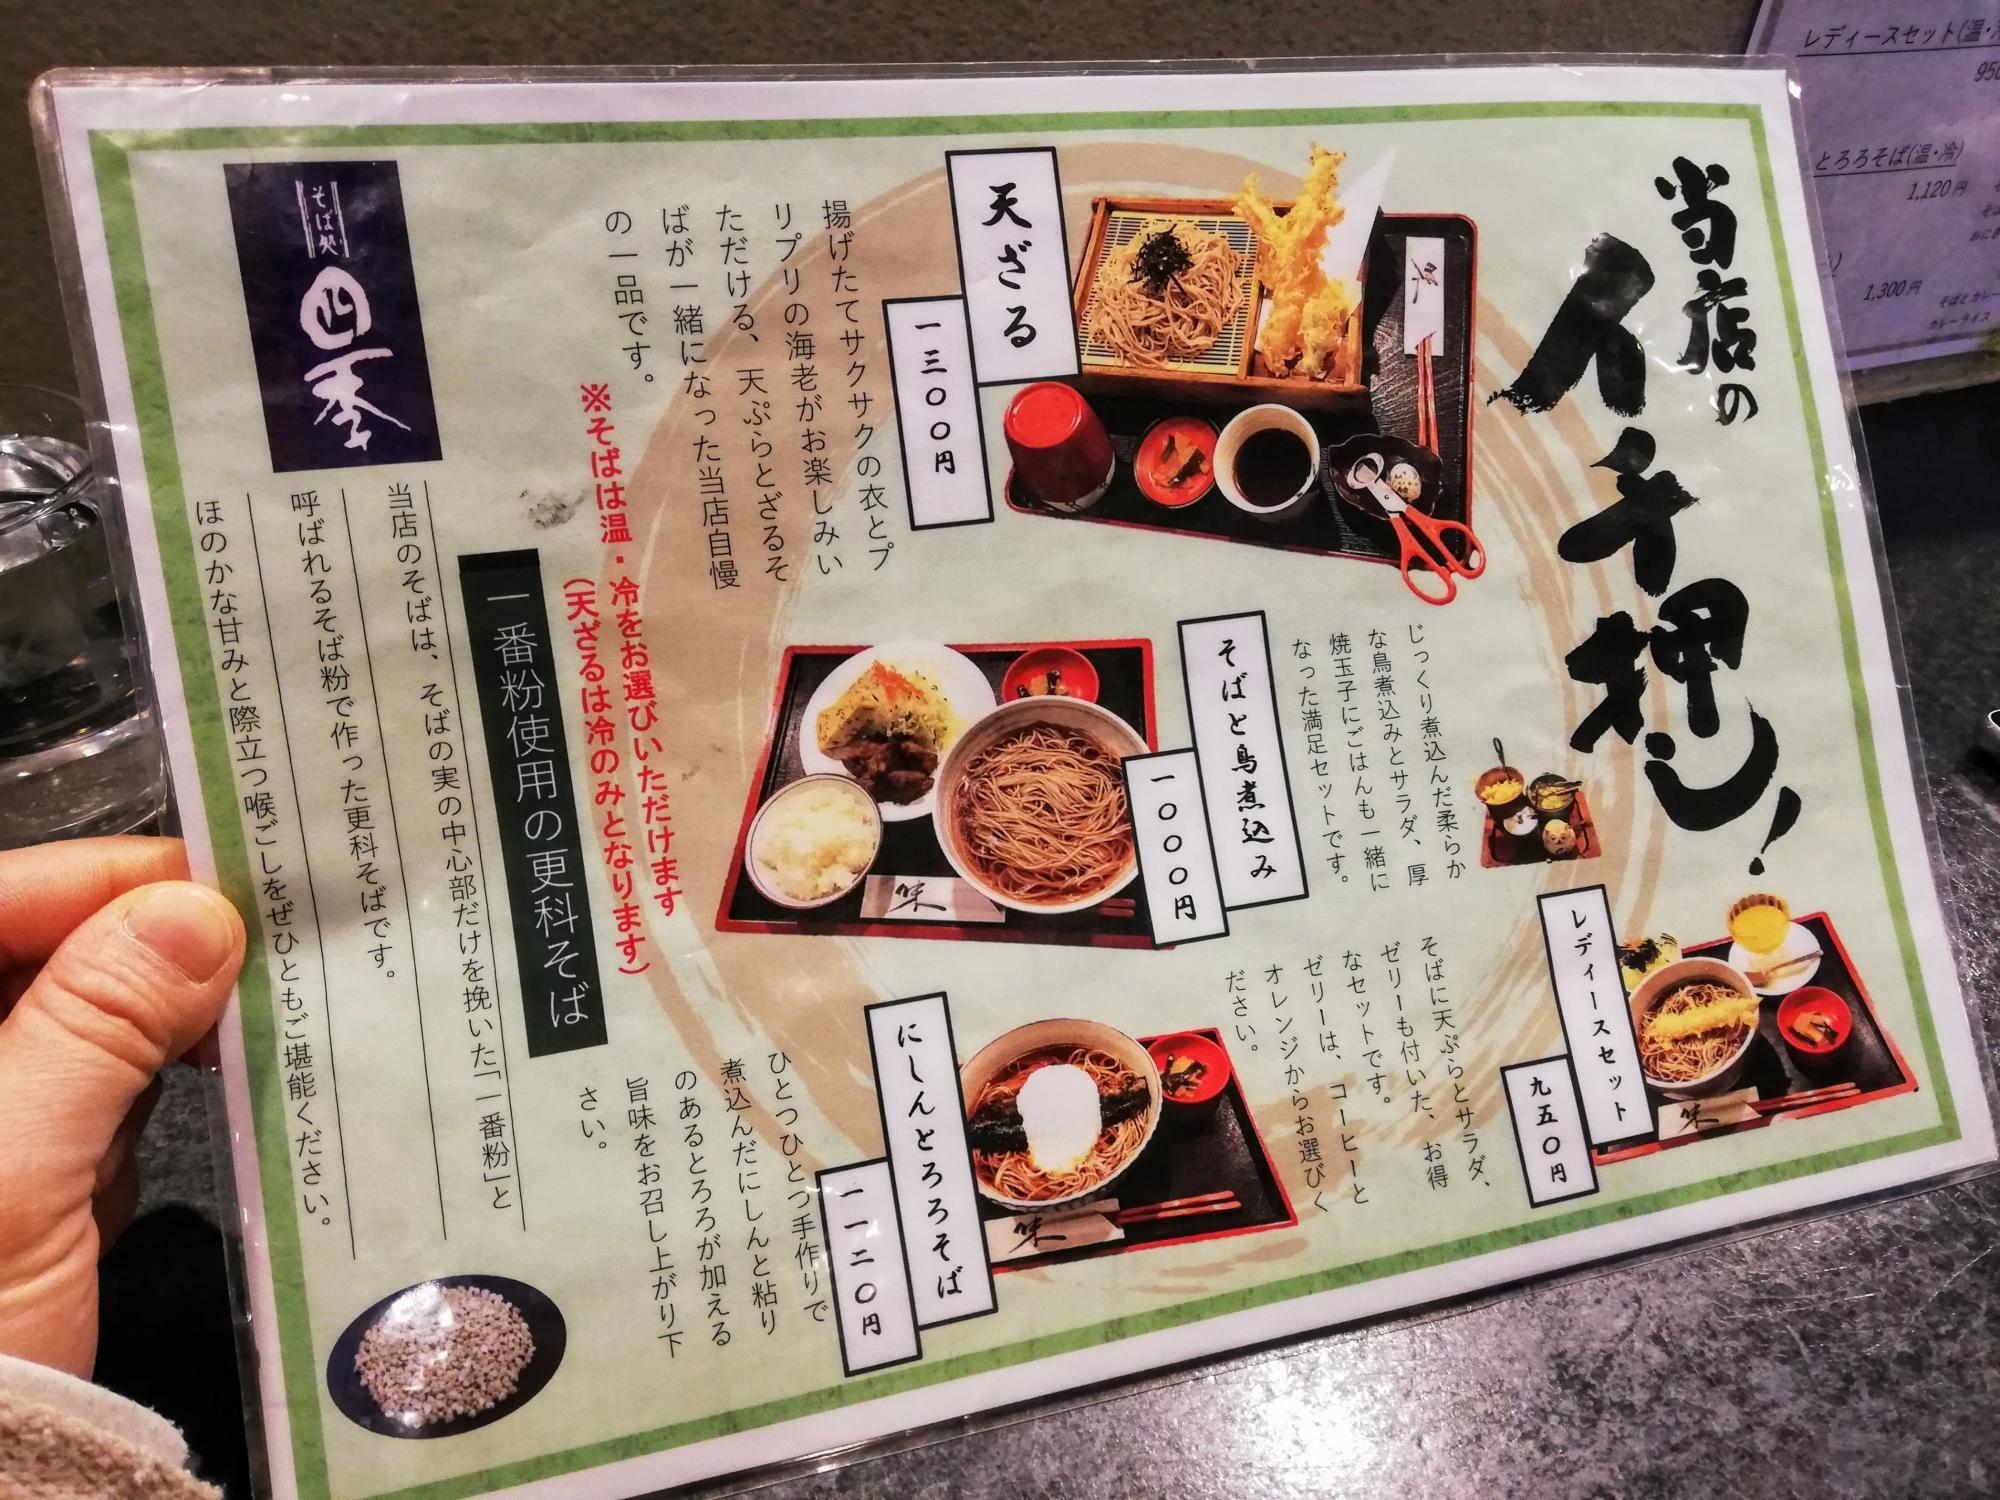 当店の
イチ押し!
天ざる
一三〇〇円
揚げたてサクサクの衣とプ
リプリの海老がお楽しみい
ただける、天ぷらとざるそ
ばが一緒になった当店自慢
の一品です。
そばと鳥煮込み
一〇〇〇円
じっくり煮込んだ柔らか
な鳥煮込みとサラダ、厚
焼玉子にごはんも一緒に
なった満足セットです。
味
レディースセット
九五〇円
そばに天ぷらとサラダ、
ゼリーも付いた、お得
なセットです。
ゼリーは、コーヒーと
オレンジからお選びく
ださい。
味
にしんとろろそば
一一二〇円
ひとつひとつ手作りで
煮込んだにしんと粘り
のあるとろろが加える
旨味をお召し上がり下
さい。
味
※そばは温・冷をお選びいただけます
(天ざるは冷のみとなります)
一番粉使用の更科そば
そば処
四季
当店のそばは、そばの実の中心部だけを挽いた「一番粉」と
呼ばれるそば粉で作った更科そばです。
ほのかな甘みと際立つ喉ごしをぜひともご堪能ください。
レディースセット(温・
950
とろろそば(温・冷)
1,120円
1,300円
そばとカレー
カレーライス